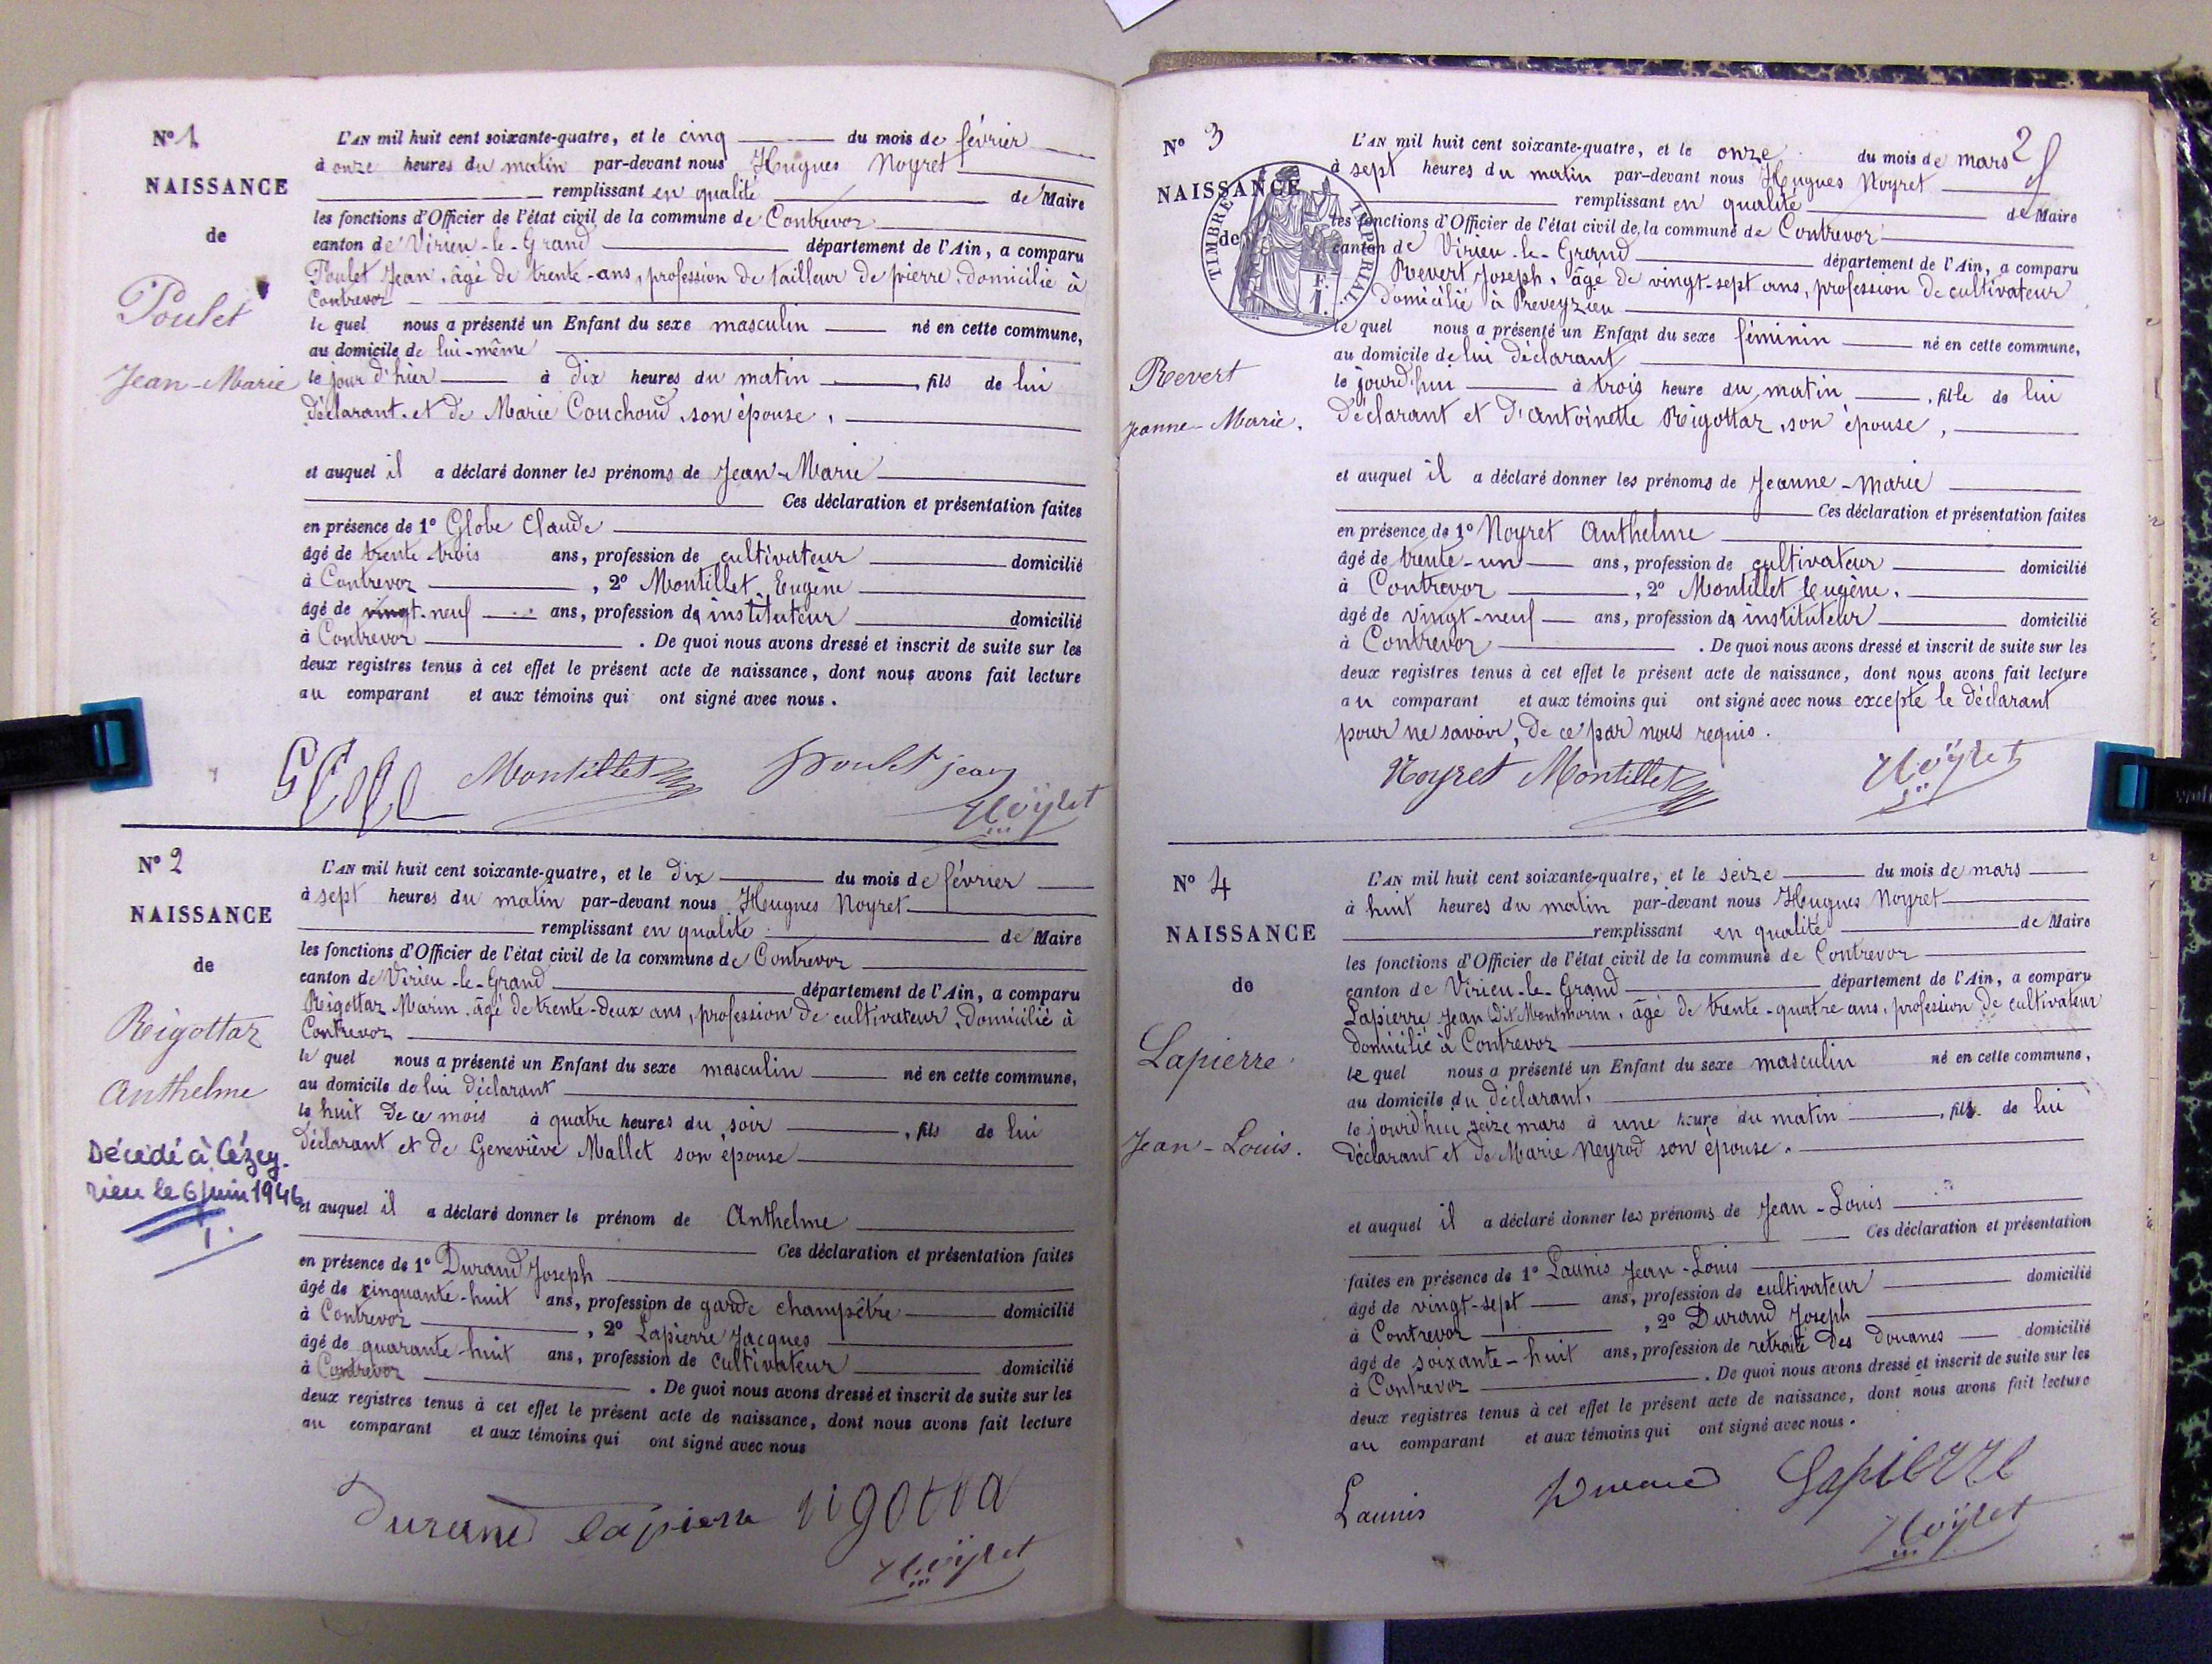 N° 1
NAISSANCE
de
Poulet
Jean-Marie
L'AN mil huit cent soixante-quatre, et le cinq du mois de février
à onze heures du matin par-devant nous Hugues Noyret
remplissant en qualité de Maire
les fonctions d'Officier de l'état civil de la commune de Contrevoz
canton de Virieu-le-Grand département de l'Ain, a comparu
Poulet Jean, âgé de trente-ans, profession de tailleur de pierre, domicilié à
Contrevoz
le quel nous a présenté un Enfant du sexe masculin né en cette commune,
au domicile de lui-même
le jour d'hier à dix heures du matin, fils de lui
déclarant et de Marie Couchoud, son épouse,
et auquel il a déclaré donner les prénoms de Jean-Marie
Ces déclaration et présentation faites
en présence de 1° Globe Claude
âgé de trente-trois ans, profession de cultivateur domicilié
à Contrevoz, 2° Montillet Eugène
âgé de vingt-neuf ans, profession de instituteur domicilié
à Contrevoz. De quoi nous avons dressé et inscrit de suite sur les
deux registres tenus à cet effet le présent acte de naissance, dont nous avons fait lecture
au comparant et aux témoins qui ont signé avec nous.
Montillet poulet jean
Noÿret
N° 2
NAISSANCE
de
Rigottaz
Anthelme
Décédé à Cézey-
rieu le 6 juin 1946
L'AN mil huit cent soixante-quatre, et le dix du mois de février
à sept heures du matin par-devant nous Hugues Noyret
remplissant en qualité de Maire
les fonctions d'Officier de l'état civil de la commune de Contrevoz
canton de Virieu-le-Grand département de l'Ain, a comparu
Rigottaz Marin, âgé de trente-deux ans, profession de cultivateur, domicilié à
Contrevoz
le quel nous a présenté un Enfant du sexe masculin né en cette commune,
au domicile de lui déclarant
le huit de ce mois à quatre heures du soir, fils de lui
déclarant et de Geneviève Mallet son épouse
et auquel il a déclaré donner le prénom de Anthelme
Ces déclaration et présentation faites
en présence de 1° Durand Joseph
âgé de cinquante-huit ans, profession de garde champêtre domicilié
à Contrevoz, 2° Lapierre Jacques
âgé de quarante-huit ans, profession de cultivateur domicilié
à Contrevoz. De quoi nous avons dressé et inscrit de suite sur les
deux registres tenus à cet effet le présent acte de naissance, dont nous avons fait lecture
au comparant et aux témoins qui ont signé avec nous
Durand lapierre rigotta
Noÿret
2
N° 3
NAISSANCE
de
TIMBRE IMPÉRIAL.
Revert
Jeanne-Marie.
L'AN mil huit cent soixante-quatre, et le onze du mois de mars
à sept heures du matin par-devant nous Hugues Noyret
remplissant en qualité de Maire
les fonctions d'Officier de l'état civil de la commune de Contrevoz
canton de Virieu-le-Grand département de l'Ain, a comparu
Revert Joseph, âgé de vingt-sept ans, profession de cultivateur
domicilié à Preveyzieu
le quel nous a présenté un Enfant du sexe féminin né en cette commune,
au domicile de lui déclarant
le jourd'hui à trois heure du matin, fille de lui
déclarant et d'Antoinette Rigottaz, son épouse,
et auquel il a déclaré donner les prénoms de Jeanne-Marie
Ces déclaration et présentation faites
en présence de 1° Noyret Anthelme
âgé de trente-un ans, profession de cultivateur domicilié
à Contrevoz, 2° Montillet Eugène.
âgé de vingt-neuf ans, profession de instituteur domicilié
à Contrevoz. De quoi nous avons dressé et inscrit de suite sur les
deux registres tenus à cet effet le présent acte de naissance, dont nous avons fait lecture
au comparant et aux témoins qui ont signé avec nous excepté le déclarant
pour ne savoir, de ce par nous requis.
Noyret Montillet Noÿret
N° 4
NAISSANCE
de
Lapierre
Jean-Louis.
L'AN mil huit cent soixante-quatre, et le seize du mois de mars
à huit heures du matin par-devant nous Hugues Noyret
remplissant en qualité de Maire
les fonctions d'Officier de l'état civil de la commune de Contrevoz
canton de Virieu-le-Grand département de l'Ain, a comparu
Lapierre Jean dit Montmorin, âgé de trente-quatre ans, profession de cultivateur
domicilié à Contrevoz
le quel nous a présenté un Enfant du sexe masculin né en cette commune,
au domicile du déclarant,
le jourd'hui seize mars à une heure du matin, fils de lui
déclarant et de Marie Neyrod son épouse.
et auquel il a déclaré donner les prénoms de Jean-Louis
Ces déclaration et présentation
faites en présence de 1° Launis Jean-Louis
âgé de vingt-sept ans, profession de cultivateur domicilié
à Contrevoz, 2° Durand Joseph
âgé de soixante-huit ans, profession de retraité des douanes domicilié
à Contrevoz. De quoi nous avons dressé et inscrit de suite sur les
deux registres tenus à cet effet le présent acte de naissance, dont nous avons fait lecture
au comparant et aux témoins qui ont signé avec nous.
Launis Durand Lapierre
Noÿret